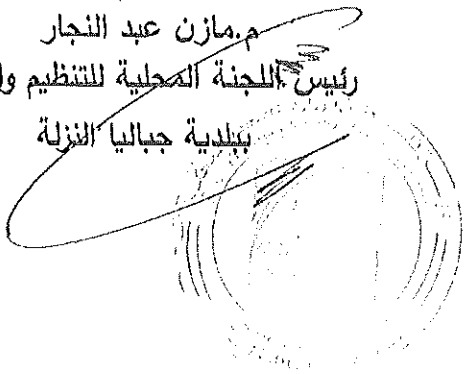 م.مازن عبد النجار
رئيس اللجنة المحلية للتنظيم وا
ببلدية جباليا النزلة